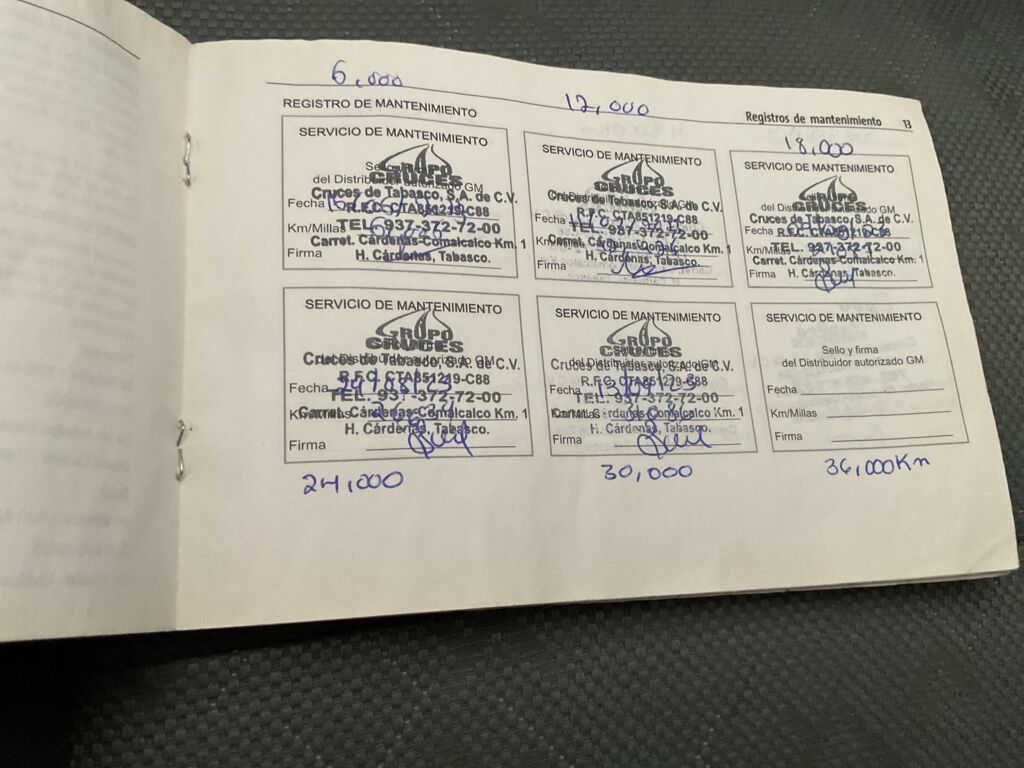 6,000
12,000
Registros de mantenimiento 13
18,000
REGISTRO DE MANTENIMIENTO
SERVICIO DE MANTENIMIENTO
GRUPO
CRUCES
del Distribuidor autorizado GM
Cruces de Tabasco, S.A. de C.V.
Fecha
R.F.C. CTA851219-C88
Km/Millas
TEL. 937-372-72-00
Carret. Cárdenas-Comalcalco Km. 1
Firma
H. Cárdenas, Tabasco.
SERVICIO DE MANTENIMIENTO
GRUPO
CRUCES
Cruces de Tabasco, S.A. de C.V.
Fecha
R.F.C. CTA851219-C88
TEL. 937-372-72-00
Carret. Cárdenas-Comalcalco Km. 1
Firma
H. Cárdenas, Tabasco.
SERVICIO DE MANTENIMIENTO
GRUPO
CRUCES
del Distribuidor autorizado GM
Cruces de Tabasco, S.A. de C.V.
Fecha
R.F.C. CTA851219-C88
Km/Millas
TEL. 937-372-72-00
Carret. Cárdenas-Comalcalco Km. 1
Firma
H. Cárdenas, Tabasco.
SERVICIO DE MANTENIMIENTO
GRUPO
CRUCES
Cruces de Tabasco, S.A. de C.V.
R.F.C. CTA851219-C88
Fecha
TEL. 937-372-72-00
Carret. Cárdenas-Comalcalco Km. 1
H. Cárdenas, Tabasco.
Firma
24,000
SERVICIO DE MANTENIMIENTO
GRUPO
CRUCES
del Distribuidor autorizado GM
Cruces de Tabasco, S.A. de C.V.
R.F.C. CTA851219-C88
Fecha
TEL. 937-372-72-00
Km/Millas
Cárdenas-Comalcalco Km. 1
H. Cárdenas, Tabasco.
Firma
30,000
SERVICIO DE MANTENIMIENTO
Sello y firma
del Distribuidor autorizado GM
Fecha
Km/Millas
Firma
36,000Km